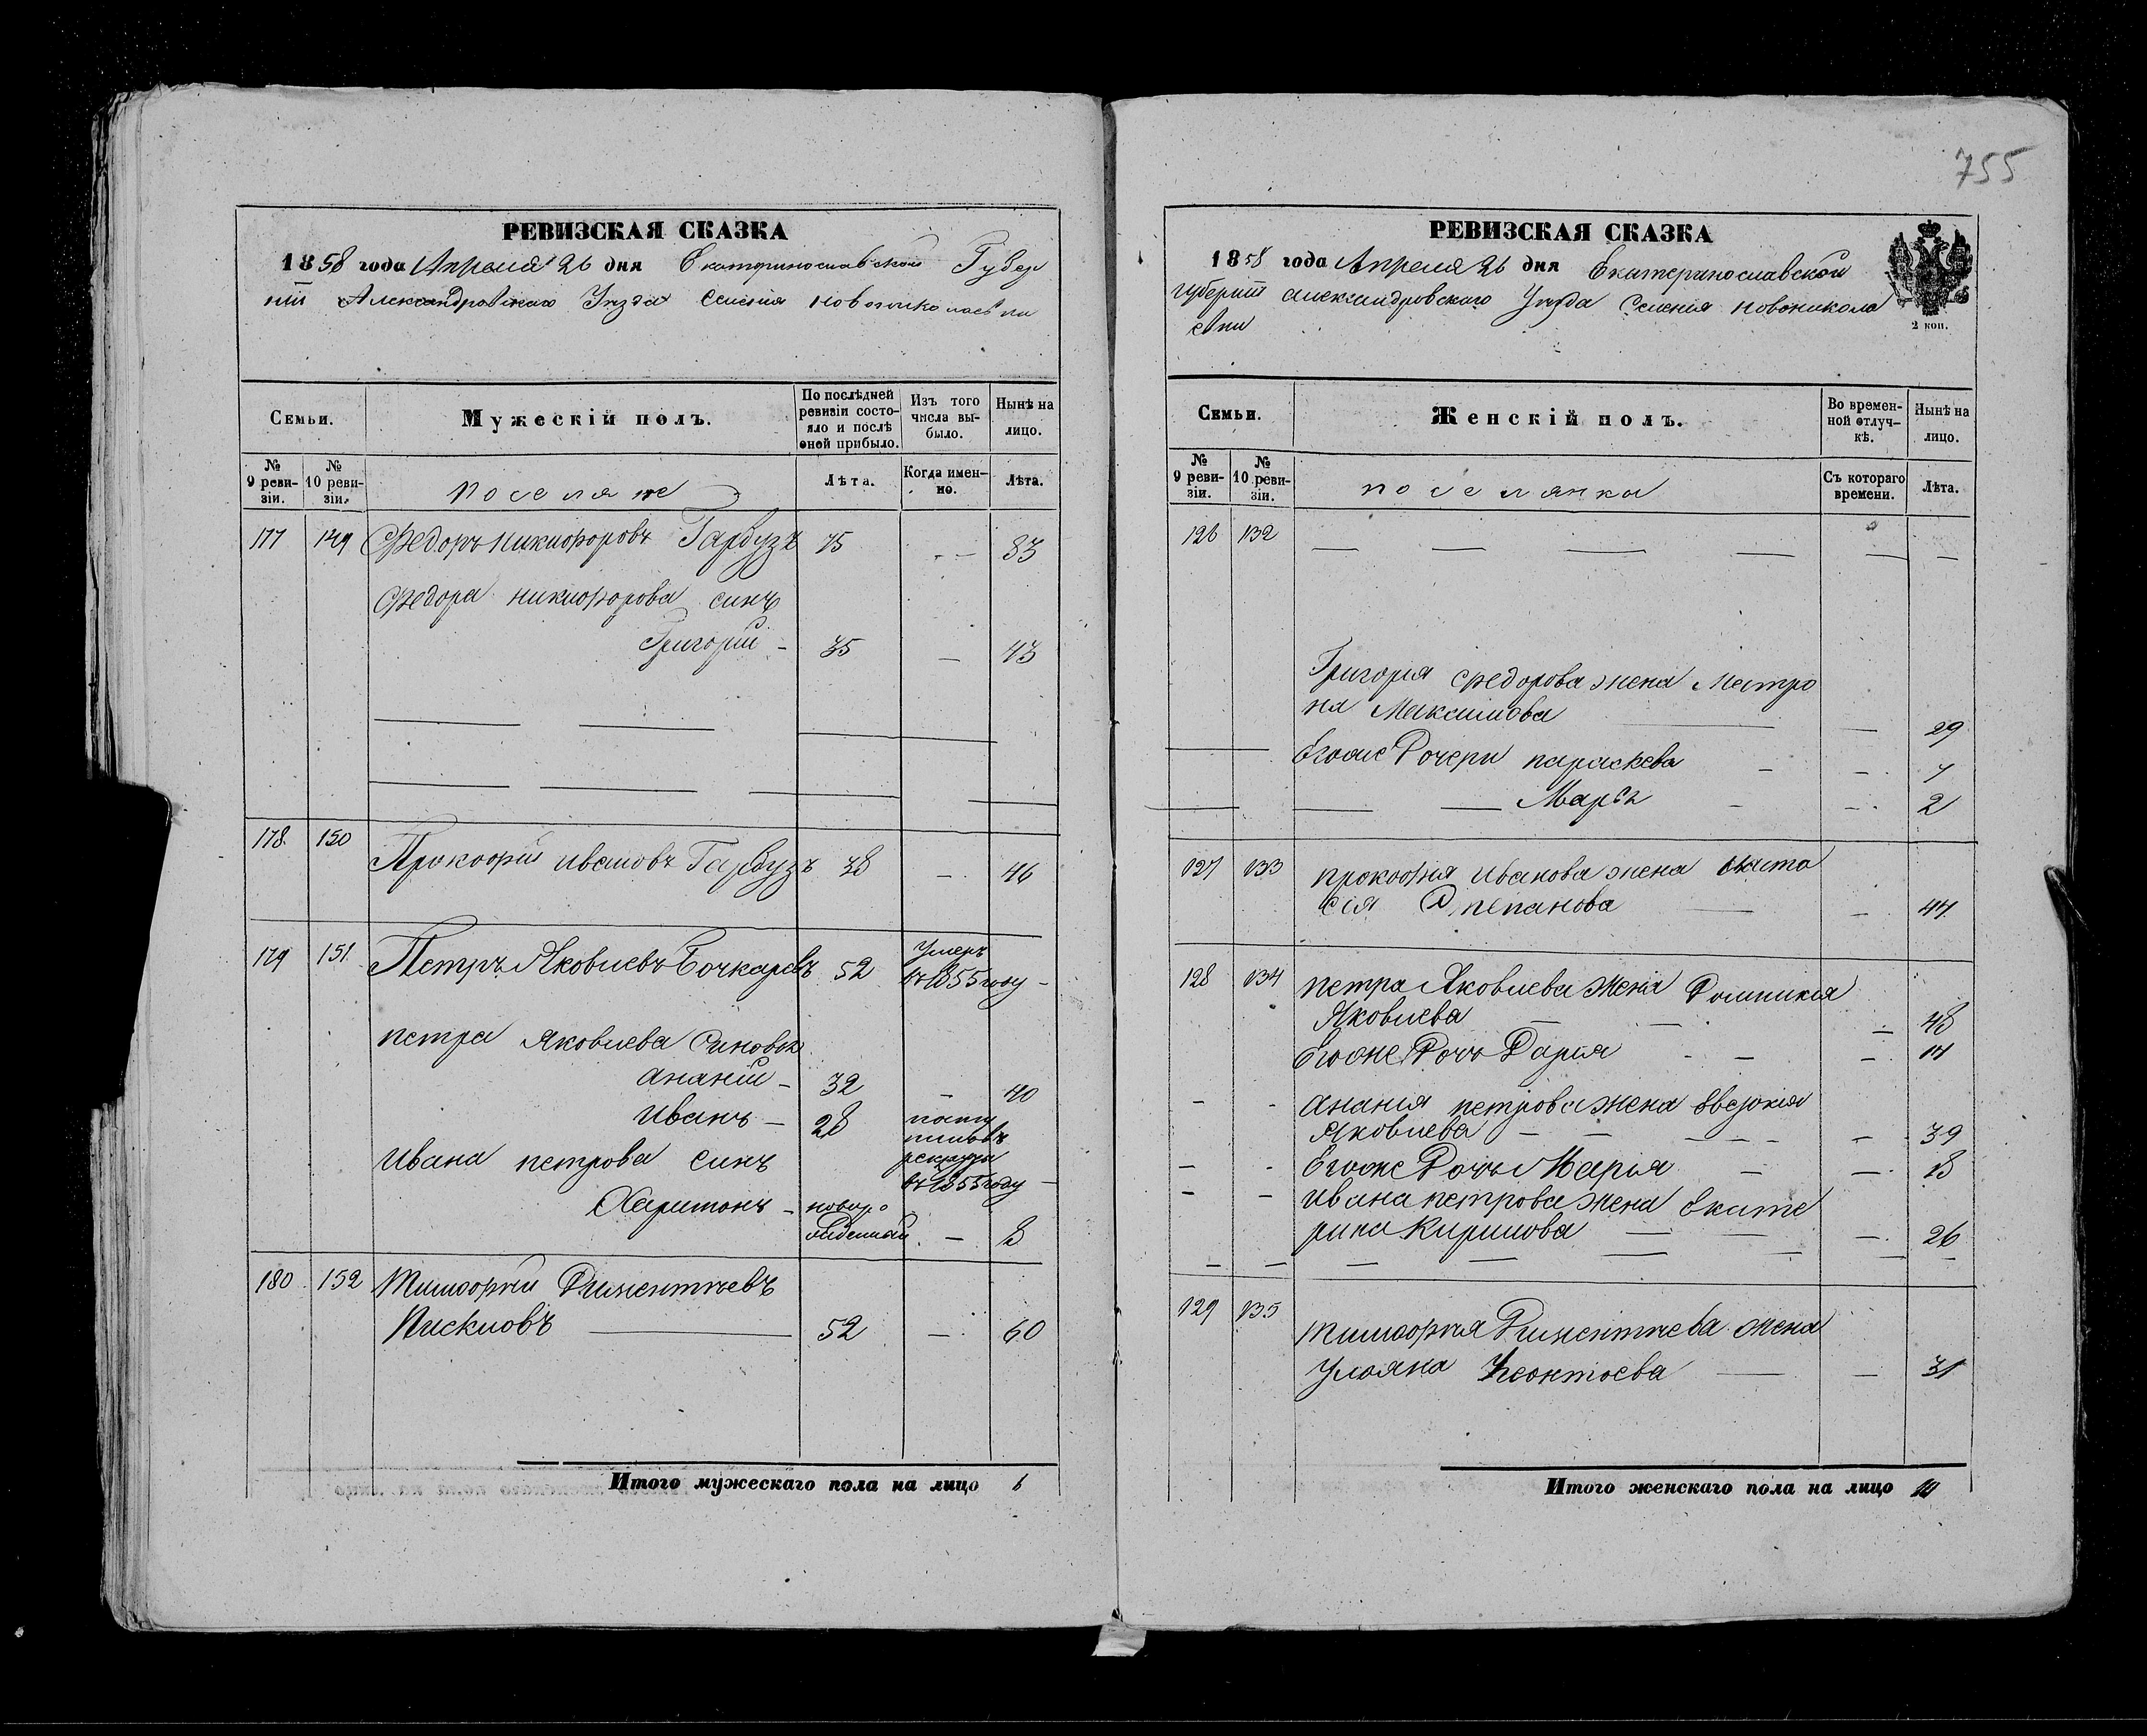 755
РЕВИЗСКАЯ СКАЗКА
1858 года Апреля 26 дня Екатеринославской Губер
нiи Александровскаго Уезда Селенiя Новониколаевки
Семьи.
Мужескiй полъ.
По послѣдней ревизiи состо-
яло и послѣ оной прибыло.
Изъ того числа вы-
было.
Нынѣ на лицо.
№ 9 реви-
зiи.
№ 10 реви-
зiи.
поселяне
Лѣта.
Когда имен-
но.
Лѣта.
177 149 Федоръ Никифоровъ Гарбузъ 75 — 83
Федора Никифорова синъ
Григорiй — 35 — 43
178. 150 Прокофiй Ивановъ Гарбузъ 38 — 46
179 151. Петръ Яковлевъ Бочкаревъ 52 Умеръ
въ 1855 году —
петра Яковлева Синовья
Ананiй — 32 — 40
Иванъ — 28 посту
пилъ въ
рекруты
въ 1855 году —
Ивана петрова синъ
Харитонъ — новоро
жденный — 8
180 152 Тимофiй Дементьевъ
Писклов​ъ — 52 — 60
Итого мужескаго пола на лицо 6
РЕВИЗСКАЯ СКАЗКА
1858 года Апреля 26 дня Екатеринославской
Губернiи Александровскаго Уезда Селенiя Новоникола
евки
2 коп.
Семьи.
Женскiй полъ.
Во времен-
ной отлуч-
кѣ.
Нынѣ на лицо.
№ 9 реви-
зiи.
№ 10 реви-
зiи.
поселянки
Съ котораго времени.
Лѣта.
126 132 — — — — — —
Григорiя Федорова жена Матро
на Максимова — — 29
Егоже Дочери параскева — — 7
— — Марья — — 2
127 133 прокофiя Иванова жена Анаста
сiя Степанова — — 44
128 134 петра Яковлева жена Домникiя
Яковлева — — — 48
Егоже Дочь Дарiя — — — 14
— — Ананiя петрова жена Евдокiя
Яковлева — — — — 39
— — Егоже Дочь Марiя — — 18
— — Ивана петрова жена Екате
рина Кирилова — — — 26
129 135 Тимофiя Дементьева жена
Ульяна Леонтьева — — 31
Итого женскаго пола на лицо 10